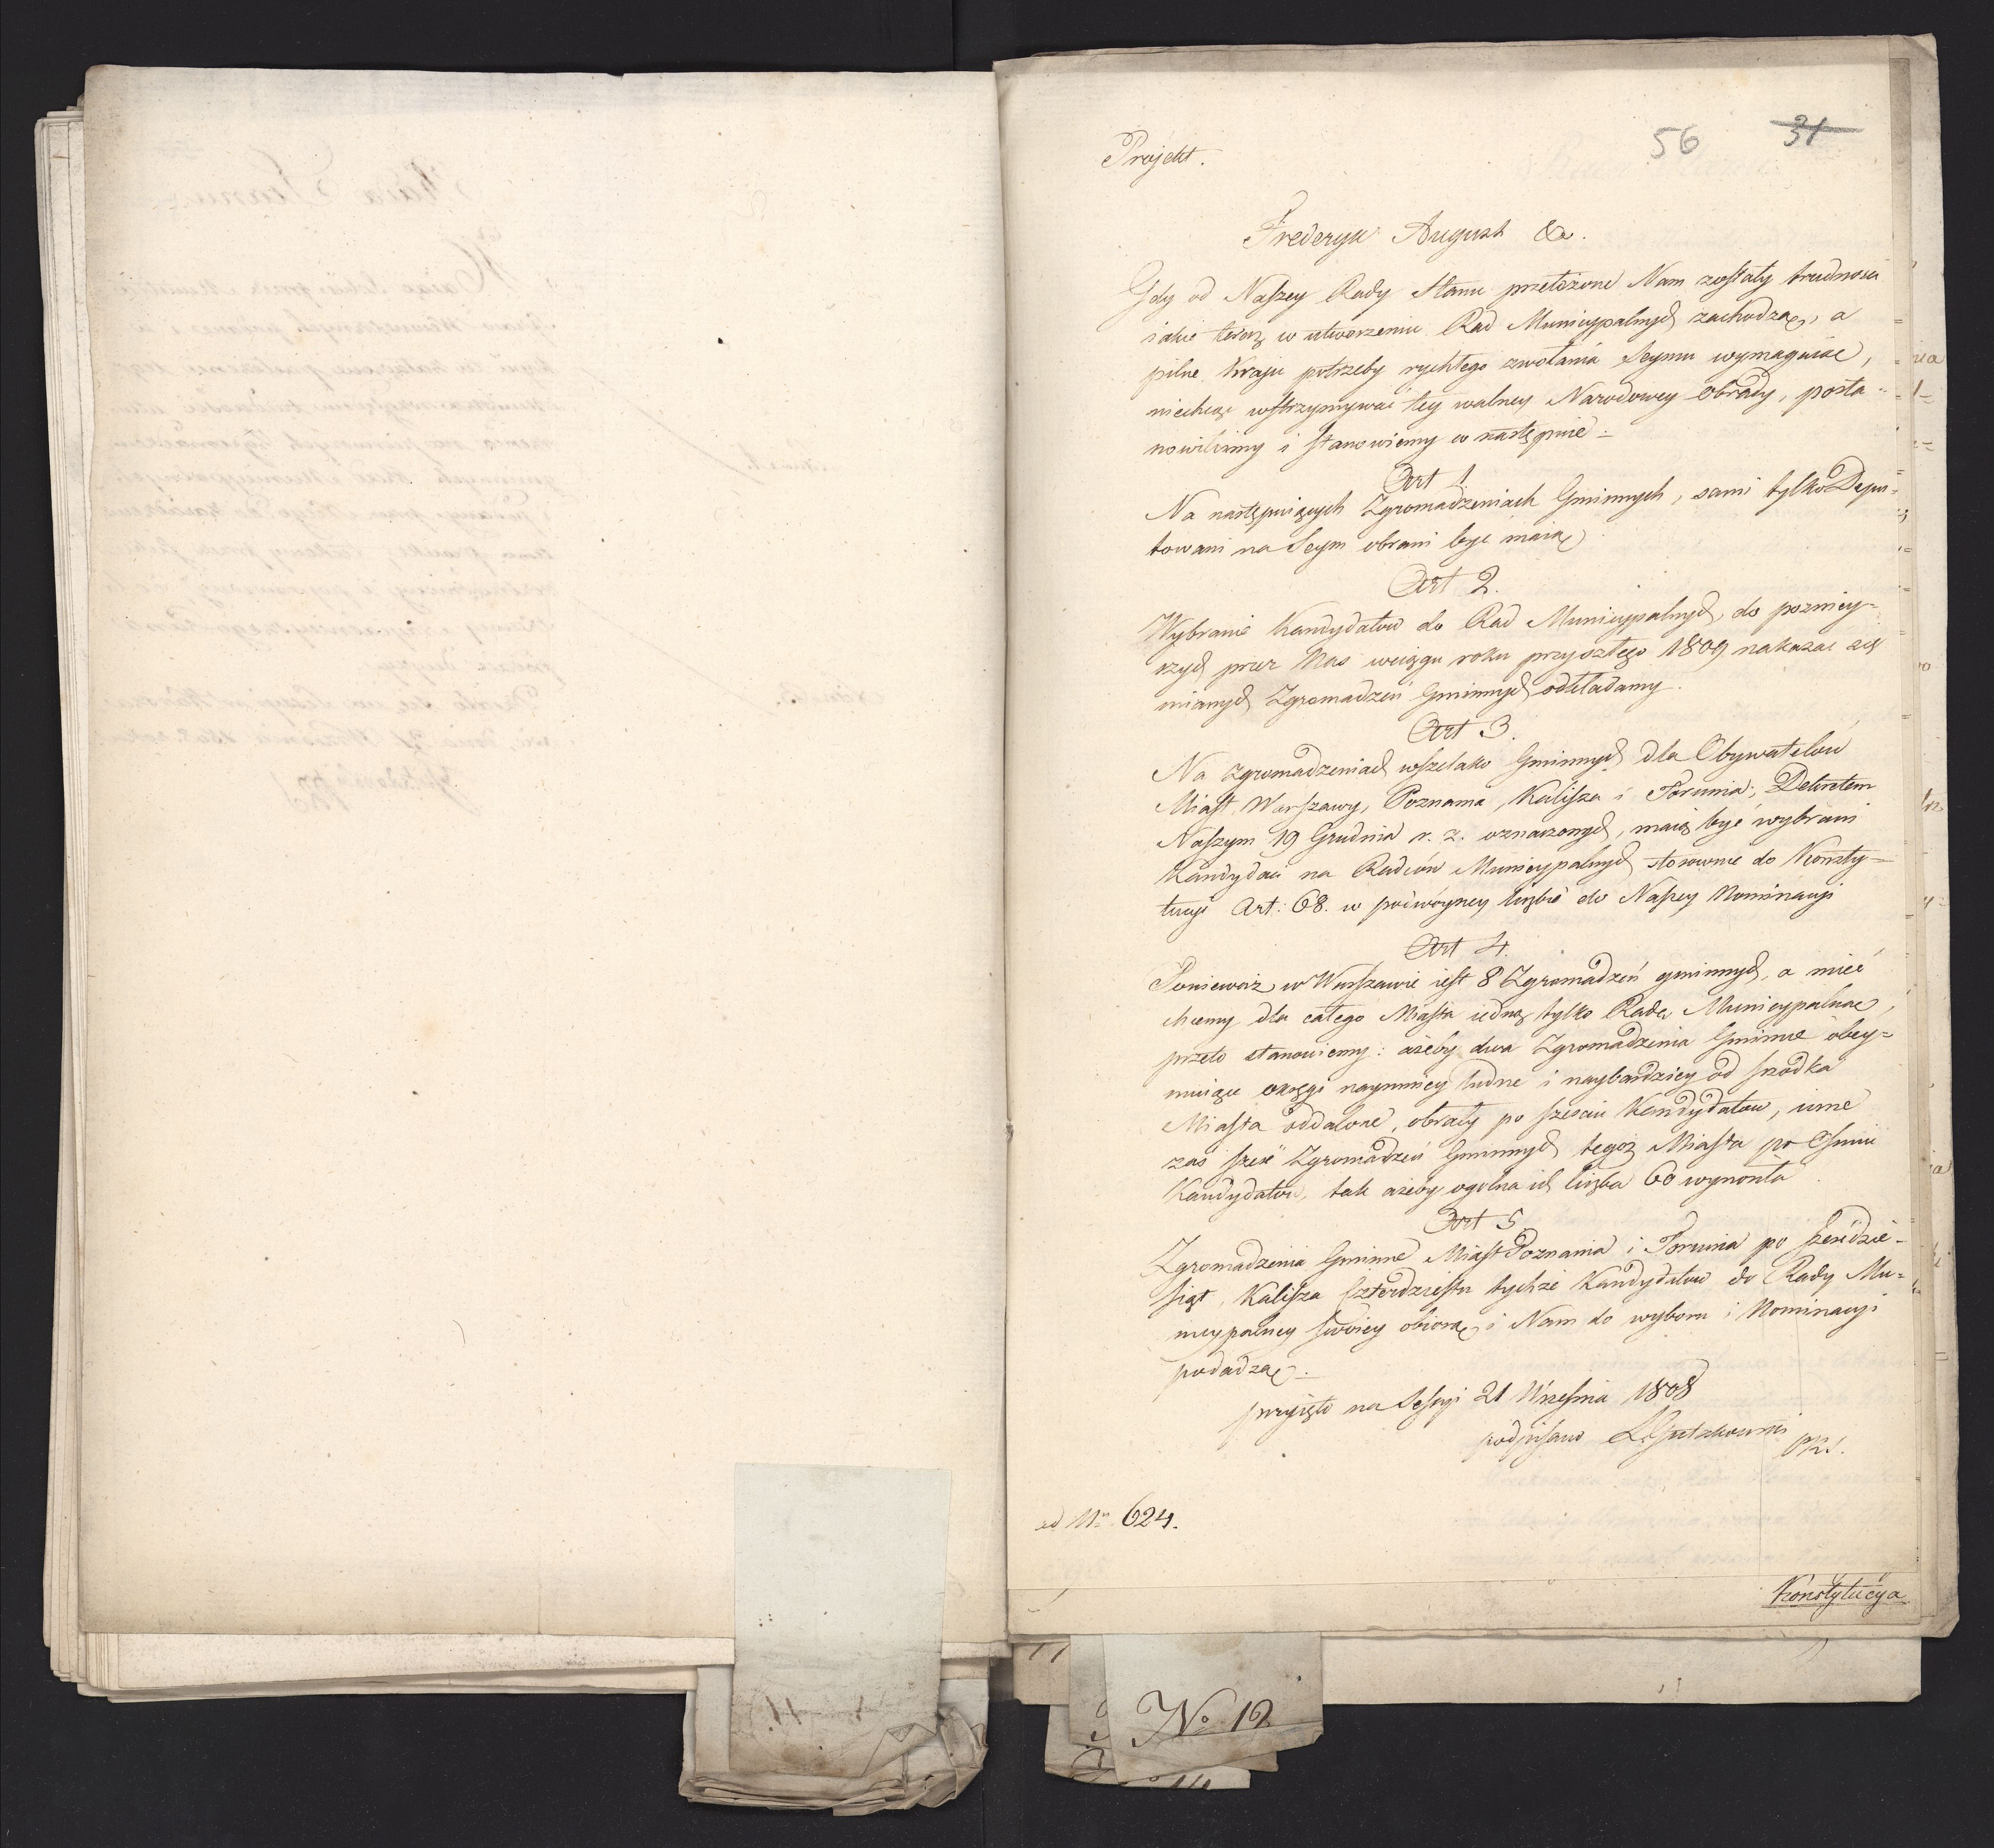 56 31
Projekt.
Frederyk August &a.
Gdy od Naszey Rady Stanu przełożone Nam zostały trudności
iakie teraz w utworzeniu Rad Municypalnych zachodzą, a
pilne Kraju potrzeby rychłego zwołania Seymu wymagaiąc,
niechcąc wstrzymywać tey walney Narodowey obrady, posta-
nowiliśmy i stanowiemy co następnie:
Art 1
Na następuiących Zgromadzeniach Gminnych, sami tylko Depu-
towani na Seym obrani być maią
Art 2.
Wybranie Kandydatow do Rad Municypalnych, do pozniey-
szych przez Nas wciągu roku przyszłego 1809 nakazać się
mianych Zgromadzeń Gminnych odkładamy.
Art 3.
Na zgromadzeniach wszelako Gminnych dla Obywatelów
Miast Warszawy, Poznania, Kalisza i Torunia, Dekretem
Naszym 19 Grudnia r. z. oznaczonych, maią być wybrani
Kandydaci na Radców Municypalnych stosownie do Konsty-
tucyi Art: 68. w podwóyney liczbie do Naszey Nominacyi
Art 4.
Ponieważ w Warszawie iest 8 Zgromadzeń gminnych, a mieć
chcemy dla całego Miasta iedną tylko Radę Municypalną,
przeto stanowiemy: ażeby dwa Zgromadzenia Gminne obey-
muiące okręgi naymniey ludne i naybardziey od srzodka
Miasta oddalone, obrały po sześciu Kandydatow, inne
zaś sześć Zgromadzeń Gminnych tegoż Miasta po Osmiu
Kandydatow, tak ażeby ogolna ich liczba 60 wynosiła
Art 5
Zgromadzenia Gminne Miast Poznania i Torunia po sześćdzie-
siąt, Kalisza czterdziestu tychże Kandydatow do Rady Mu-
nicypalney swoiey obiorą i Nam do wyboru i Nominacyi
podadzą.
przyięto na Sessyi 21 Września 1808
podpisano L. Gutakowski
PRS.
ad Nr. 624.
Konstytucya
No. 12